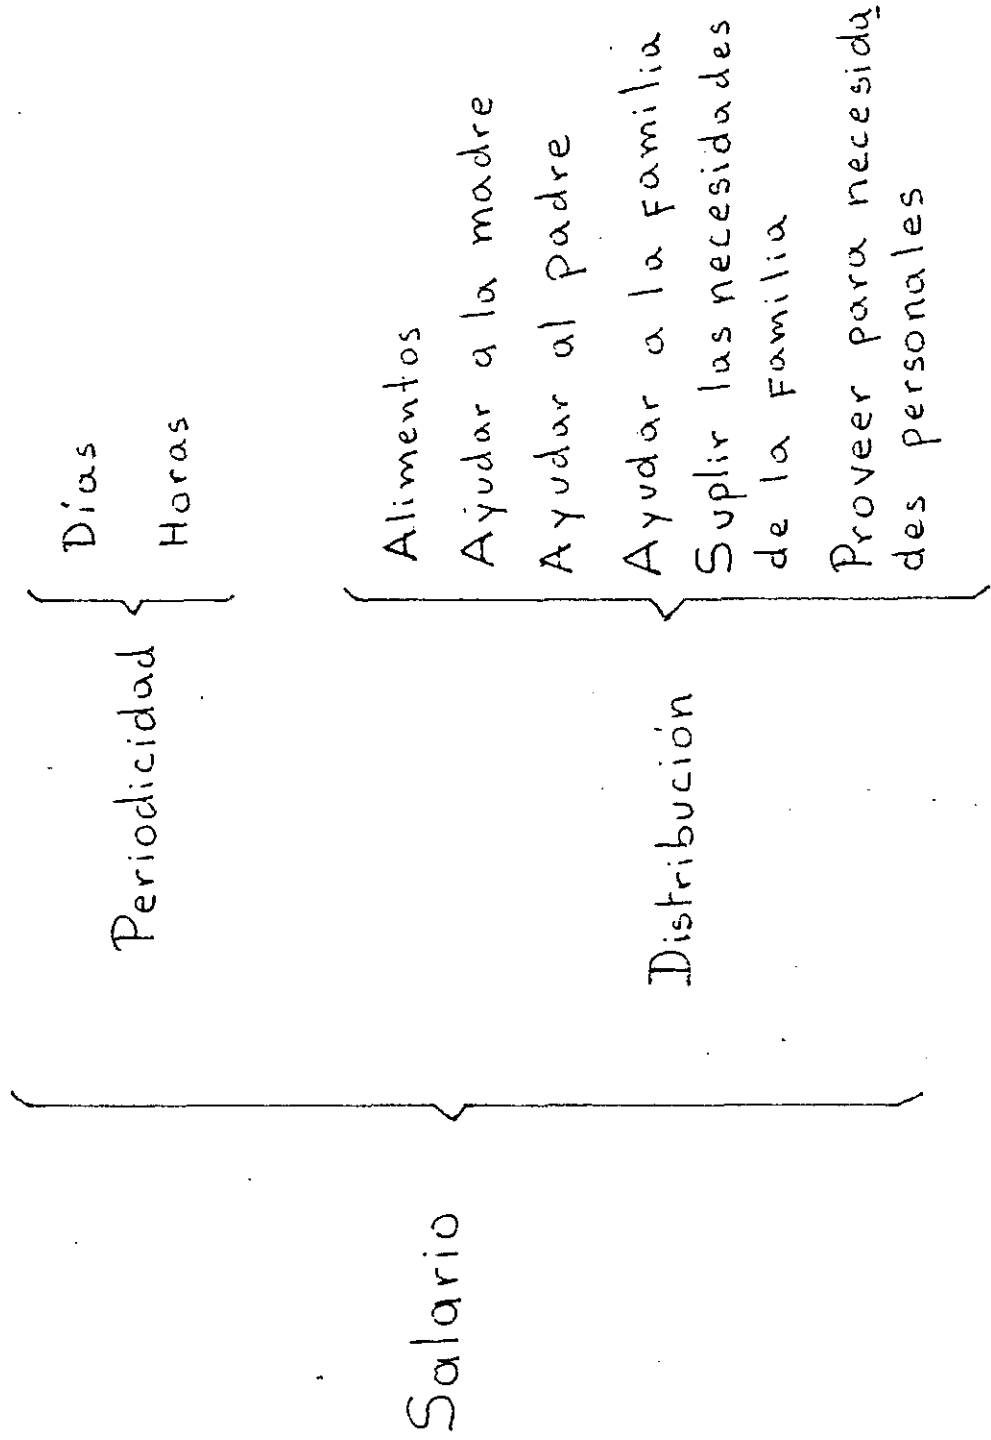 Salario
Periodicidad
Días
Horas
Distribución
Alimentos
Ayudar a la madre
Ayudar al padre
Ayudar a la familia
Suplir las necesidades
de la familia
Proveer para necesida
des personales